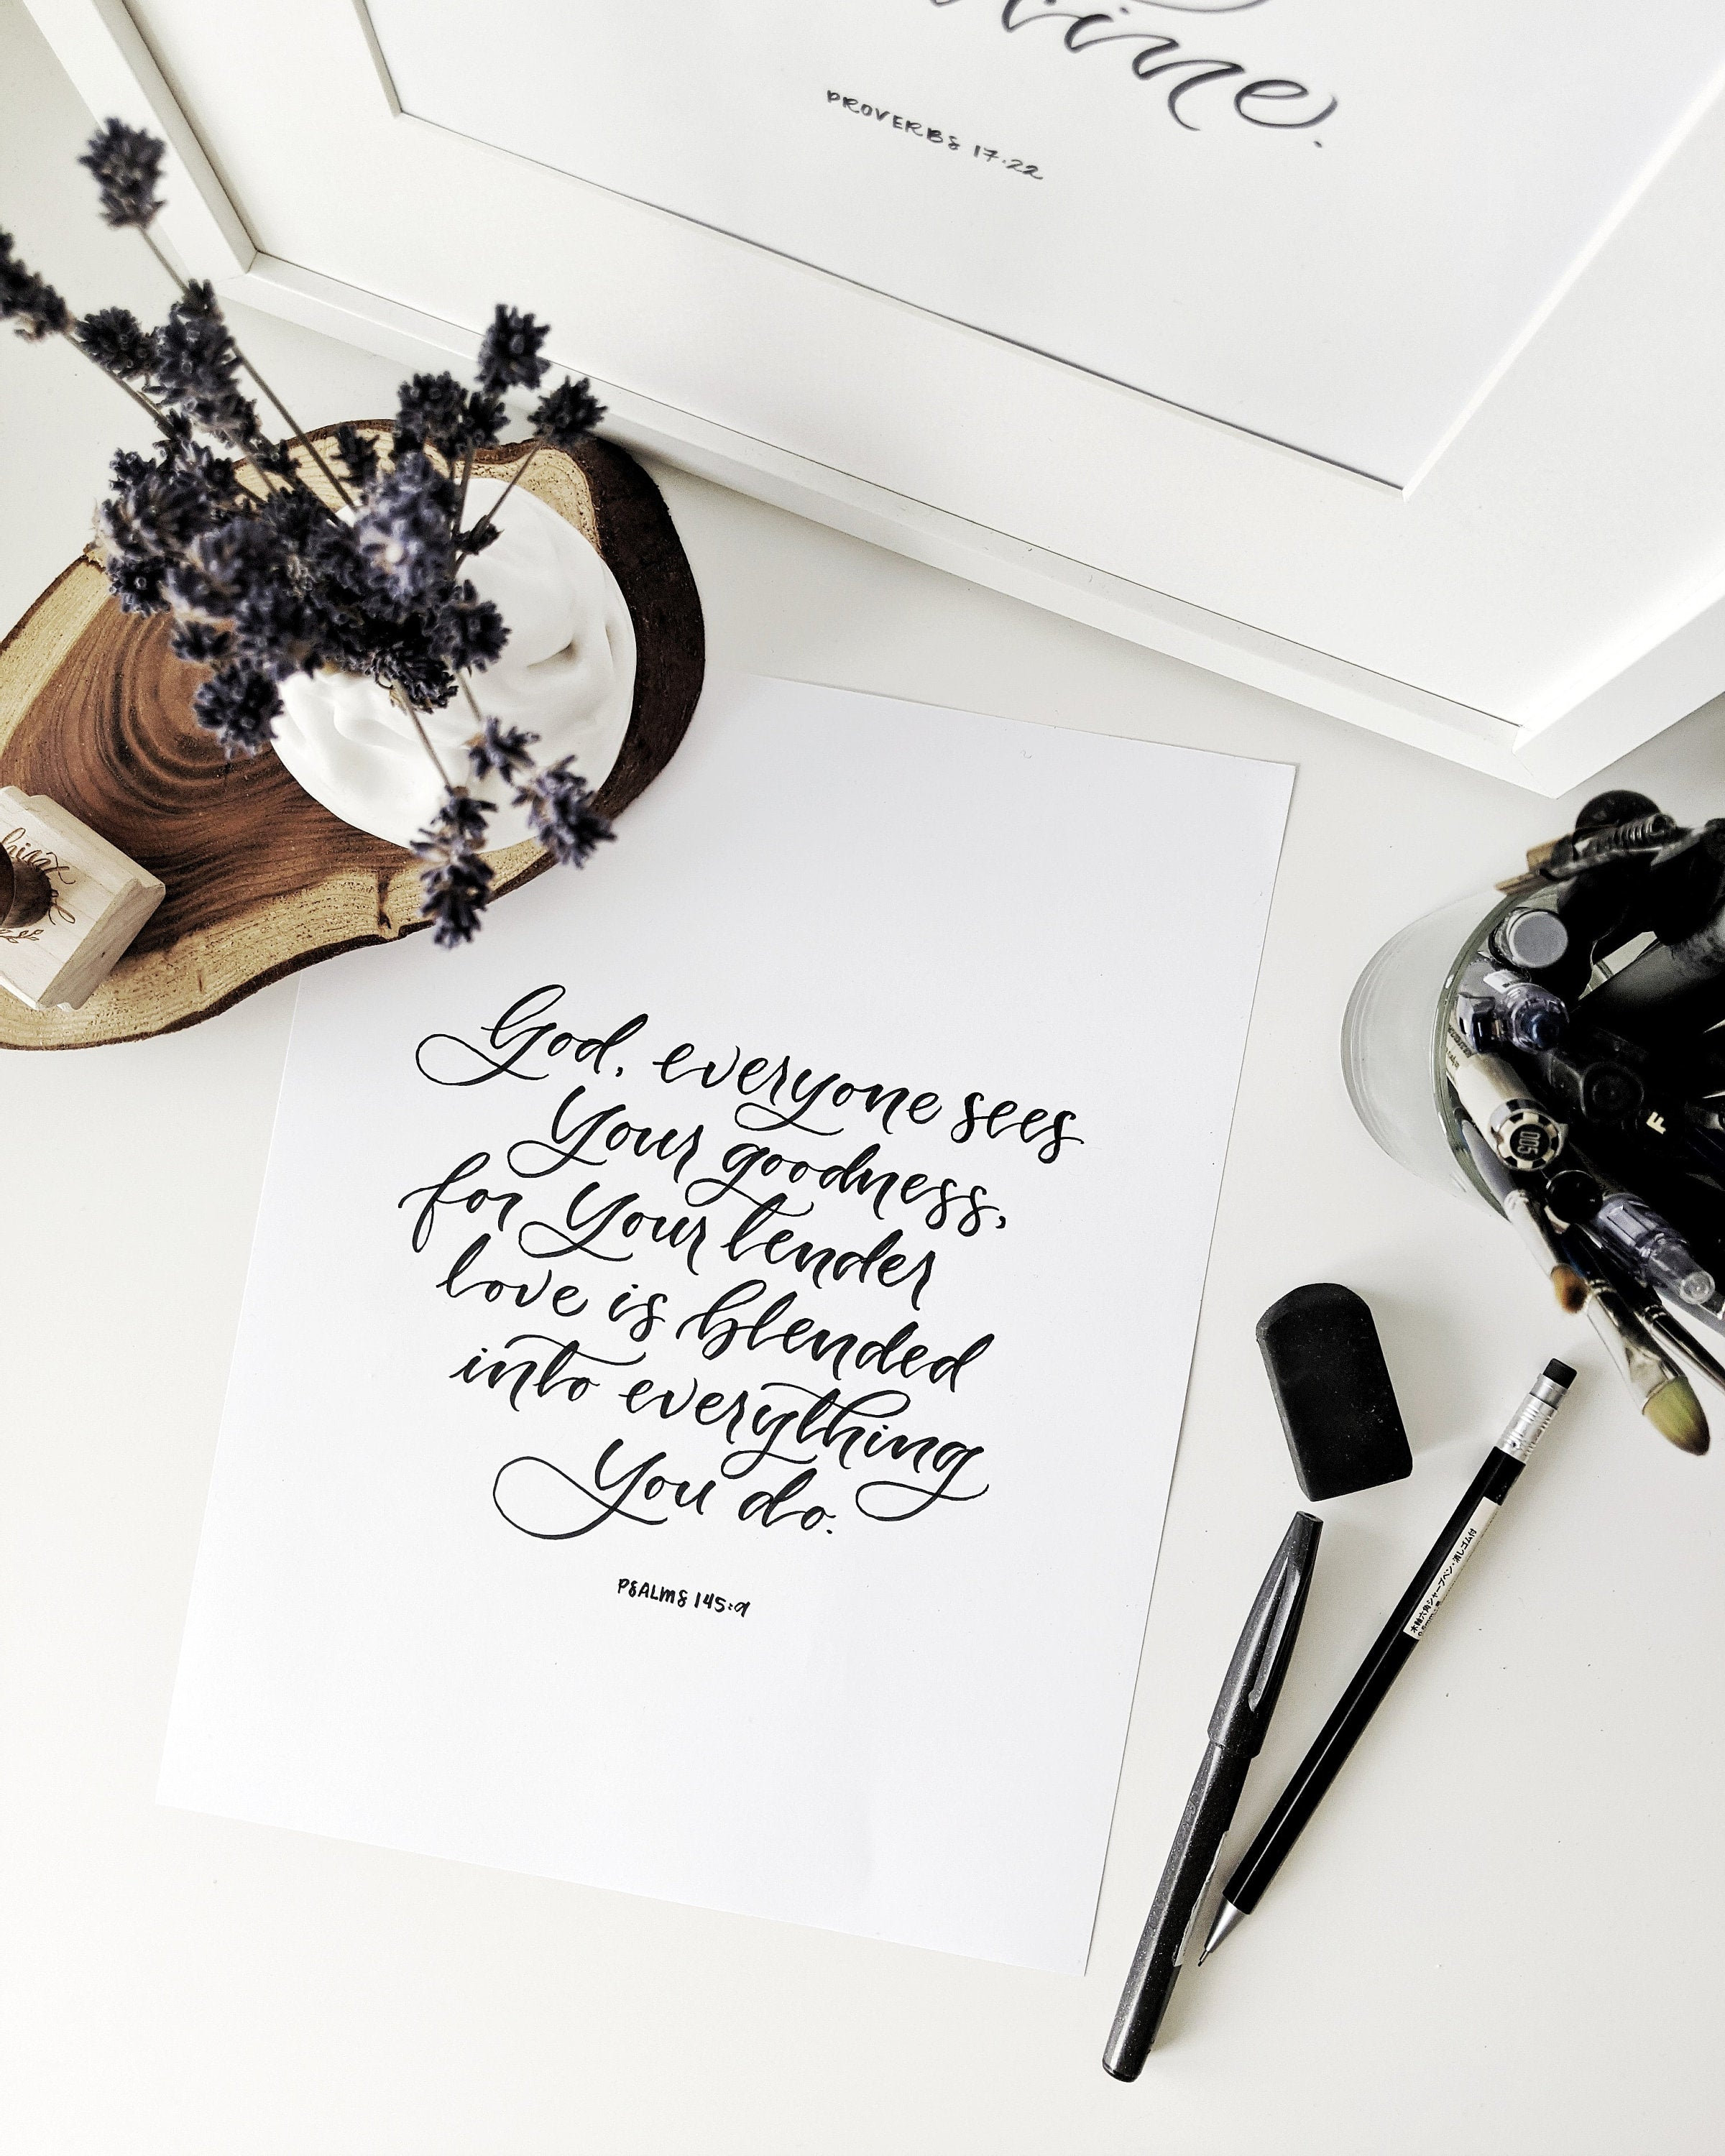 PROVERBS 17:22
God, everyone sees
Your goodness,
for Your tender
love is blended
into everything
You do.
PSALMS 145:9
005
F
木軸六角シャープペン・消しゴム付